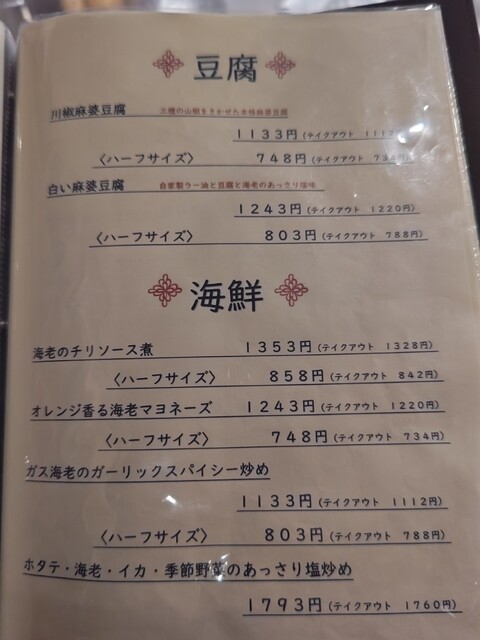 豆腐
川椒麻婆豆腐 三種の山椒をきかせた本格麻婆豆腐
1133円(テイクアウト 1112
〈ハーフサイズ〉 748円(テイクアウト 734円)
白い麻婆豆腐 自家製ラー油と豆腐と海老のあっさり塩味
1243円(テイクアウト 1220円)
〈ハーフサイズ〉 803円(テイクアウト 788円)
海鮮
海老のチリソース煮 1353円(テイクアウト 1328円)
〈ハーフサイズ〉 858円(テイクアウト 842円)
オレンジ香る海老マヨネーズ 1243円(テイクアウト 1220円)
〈ハーフサイズ〉 748円(テイクアウト 734円)
ガス海老のガーリックスパイシー炒め
1133円(テイクアウト 1112円)
〈ハーフサイズ〉 803円(テイクアウト 788円)
ホタテ・海老・イカ・季節野菜のあっさり塩炒め
1793円(テイクアウト 1760円)